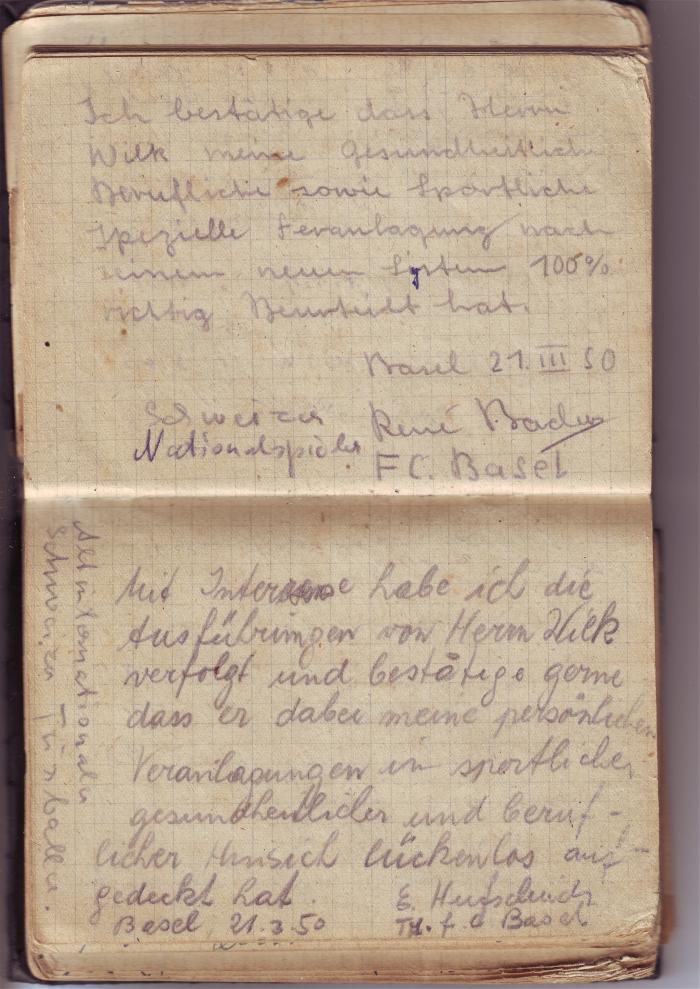 Ich bestätige dass Herrn
Wilk meine Gesundheitliche
Berufliche sowie Sportliche
Spezielle Feranlagung nach
seinem neuen System 100%
richtig Beurteilt hat.
Basel 21. III 50
Schweizer René Bader
Nationalspieler
F.C. Basel
Mit Interesse habe ich die
Ausführungen von Herrn Wilk
verfolgt und bestätige gerne
dass er dabei meine persönlichen
Veranlagungen in sportlicher
gesundheitlicher und beruf-
licher Hinsich lückenlos auf-
gedeckt hat.
E. Hufschmid
Basel, 21.3.50 TH. f. C Basel
Alt internationaler
Schweizer